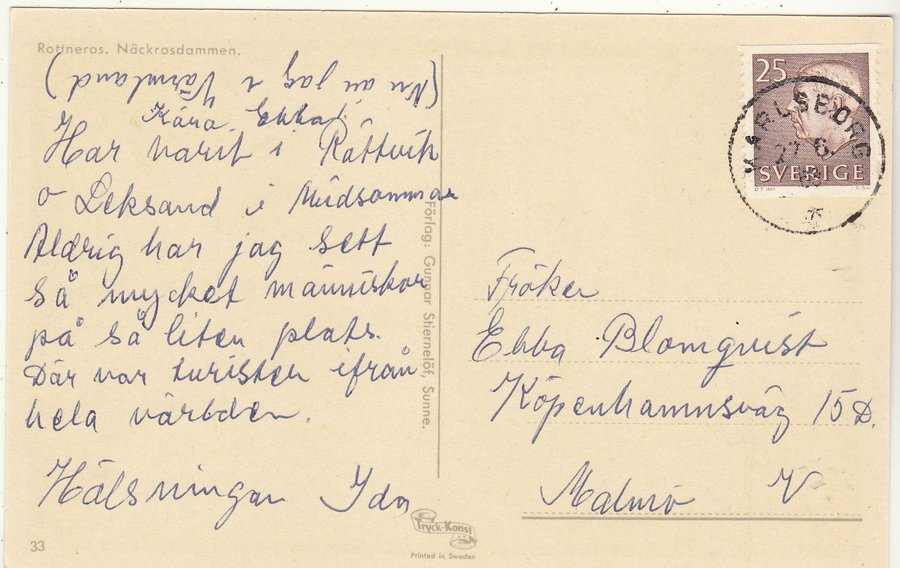 Rottneros. Näckrosdammen.
(Nu är jag i Värmland)
Kära Ebba!
Har varit i Rättvik
o Leksand i Midsommar
Aldrig har jag sett
så mycket människor
på så liten plats.
Där var turister ifrån
hela världen.
Hälsningar Ida
33
Förlag: Gunnar Stiernelöf, Sunne.
Tryck-Konst
Printed in Sweden
25
SVERIGE
KARLSBORG
27 6
Fröken
Ebba Blomqvist
Köpenhamnsväg 15 D.
Malmö V